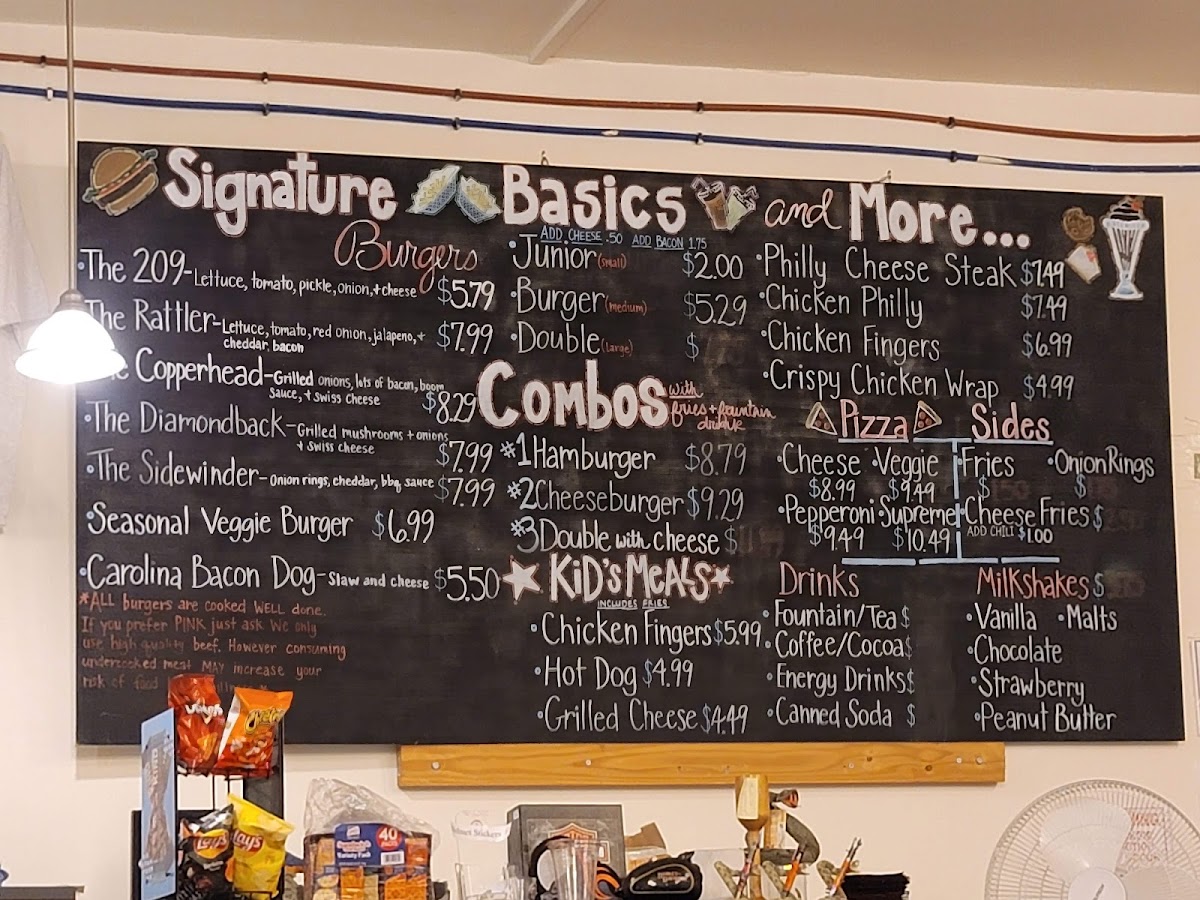 Signature
Burgers
The 209-Lettuce, tomato, pickle, onion, + cheese $5.79
The Rattler-Lettuce, tomato, red onion, jalapeno, +
cheddar, bacon $7.99
Copperhead-Grilled onions, lots of bacon, boom
sauce, + swiss cheese $8.29
The Diamondback-Grilled mushrooms + onions
+ swiss cheese $7.99
The Sidewinder-Onion rings, cheddar, bbq sauce $7.99
Seasonal Veggie Burger $6.99
Carolina Bacon Dog-Slaw and cheese $5.50
*ALL burgers are cooked WELL done.
If you prefer PINK just ask. We only
use high quality beef. However consuming
undercooked meat MAY increase your
risk of food
Basics
ADD CHEESE .50 ADD BACON 1.75
Junior (small) $2.00
Burger (medium) $5.29
Double (large) $
Combos with
fries + fountain
drink
#1 Hamburger $8.79
#2 Cheeseburger $9.29
#3 Double with cheese $
KiD'S MEALS
INCLUDES FRIES
Chicken Fingers $5.99
Hot Dog $4.99
Grilled Cheese $4.49
and More...
Philly Cheese Steak $7.49
Chicken Philly $7.49
Chicken Fingers $6.99
Crispy Chicken Wrap $4.99
Pizza
Cheese Veggie
$8.99 $9.49
Pepperoni Supreme
$9.49 $10.49
Sides
Fries Onion Rings
$ $
Cheese Fries $
ADD CHILI $1.00
Drinks
Fountain/Tea $
Coffee/Cocoa $
Energy Drinks $
Canned Soda $
Milkshakes $
Vanilla Malts
Chocolate
Strawberry
Peanut Butter
Cheetos
Lay's
Lays
40
Variety Pack